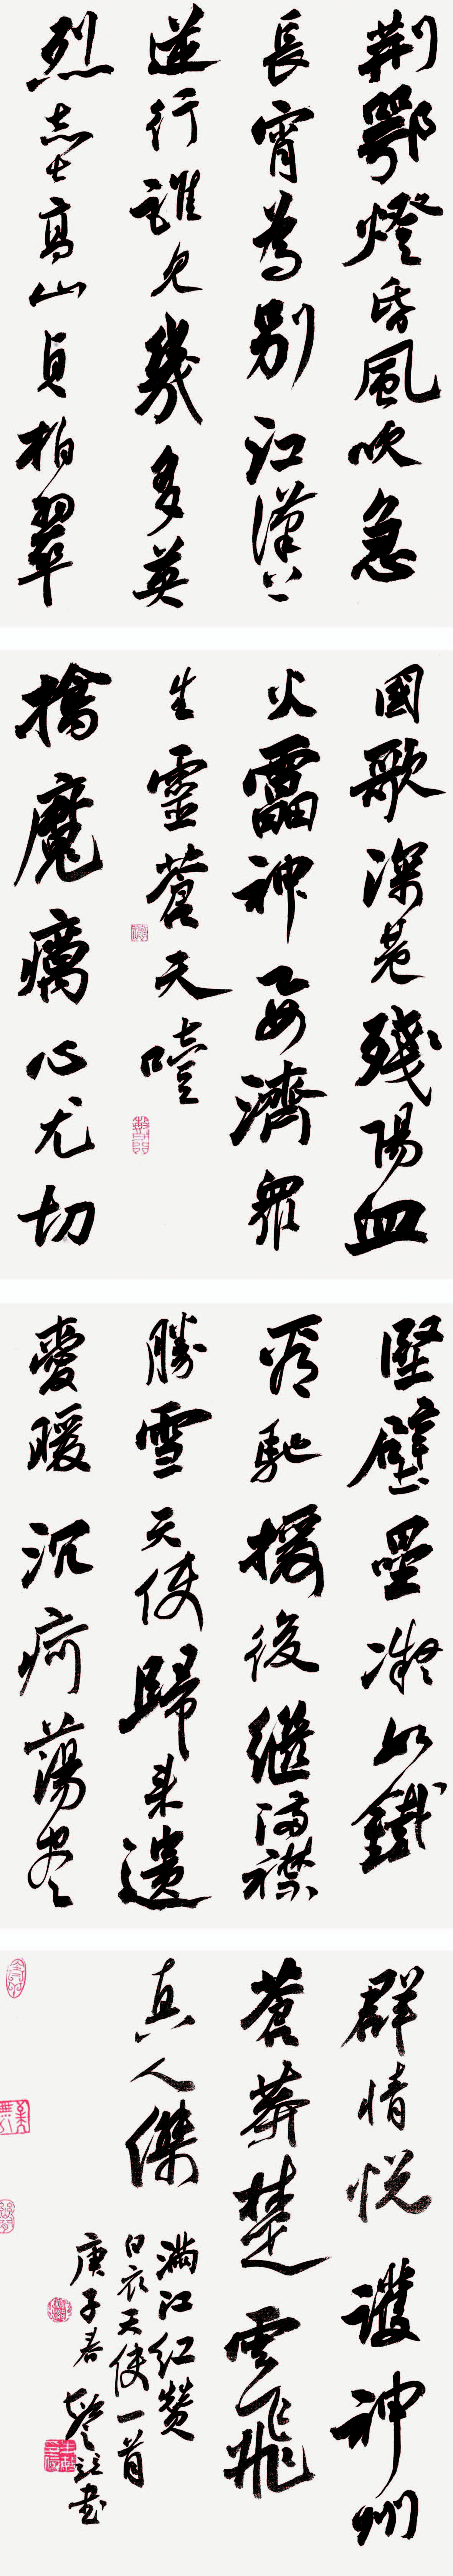 荆鄂燈昏風吹急
長宵為別江漢上
逆行誰見幾多英
烈壺高山貞柏翠
國歌深巷殘陽血
火雷神妥濟眾
生靈蒼天噎
擒魔癘心尤切
堅壁壘凝如鐵
馳援後繼滿襟
勝雪天使歸来遺
愛暖沉疴蕩尽
群情悦護神州
蒼莽楚雲飛
真人傑
滿江紅贊
白衣天使一首
庚子春